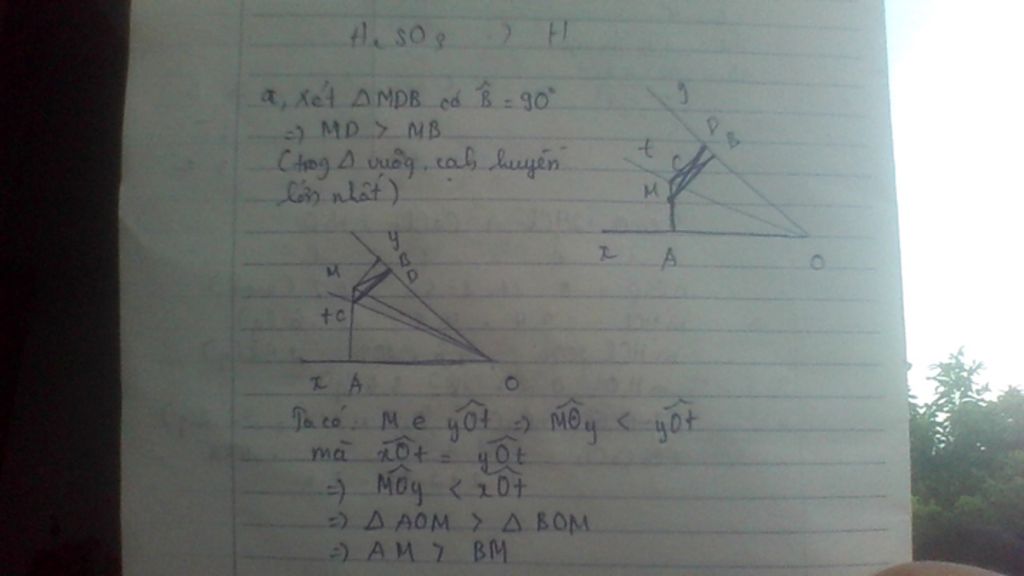 H₂SO₃ → H
a, Xét ΔMDB có B̂ = 90°
=> MD > MB
(trog Δ vuôg, cạh huyền
lớn nhất)
y
D
B
t
C
M
x
A
O
y
B
D
M
t C
x
A
O
Ta có M ∈ yÔt => MÔy < yÔt
mà xÔt = yÔt
=> MÔy < xÔt
=> Δ AOM > Δ BOM
=> AM > BM